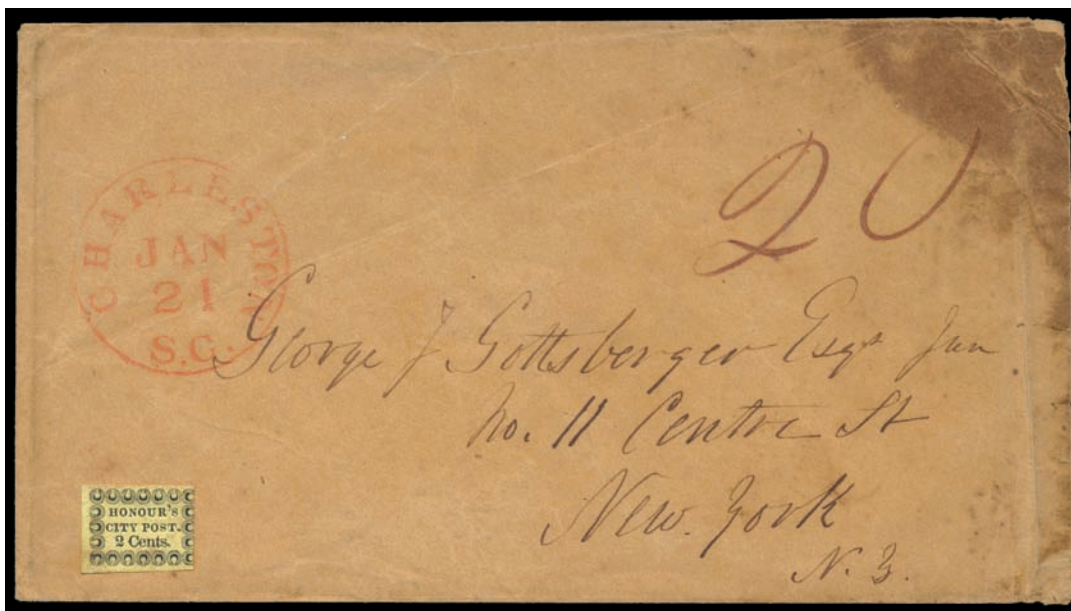 20
CHARLESTON
JAN
21
S.C.
George F Gottsberger Esqr Jun
No. 11 Centre St
New. York
N. Y.
HONOUR'S
CITY POST.
2 Cents.